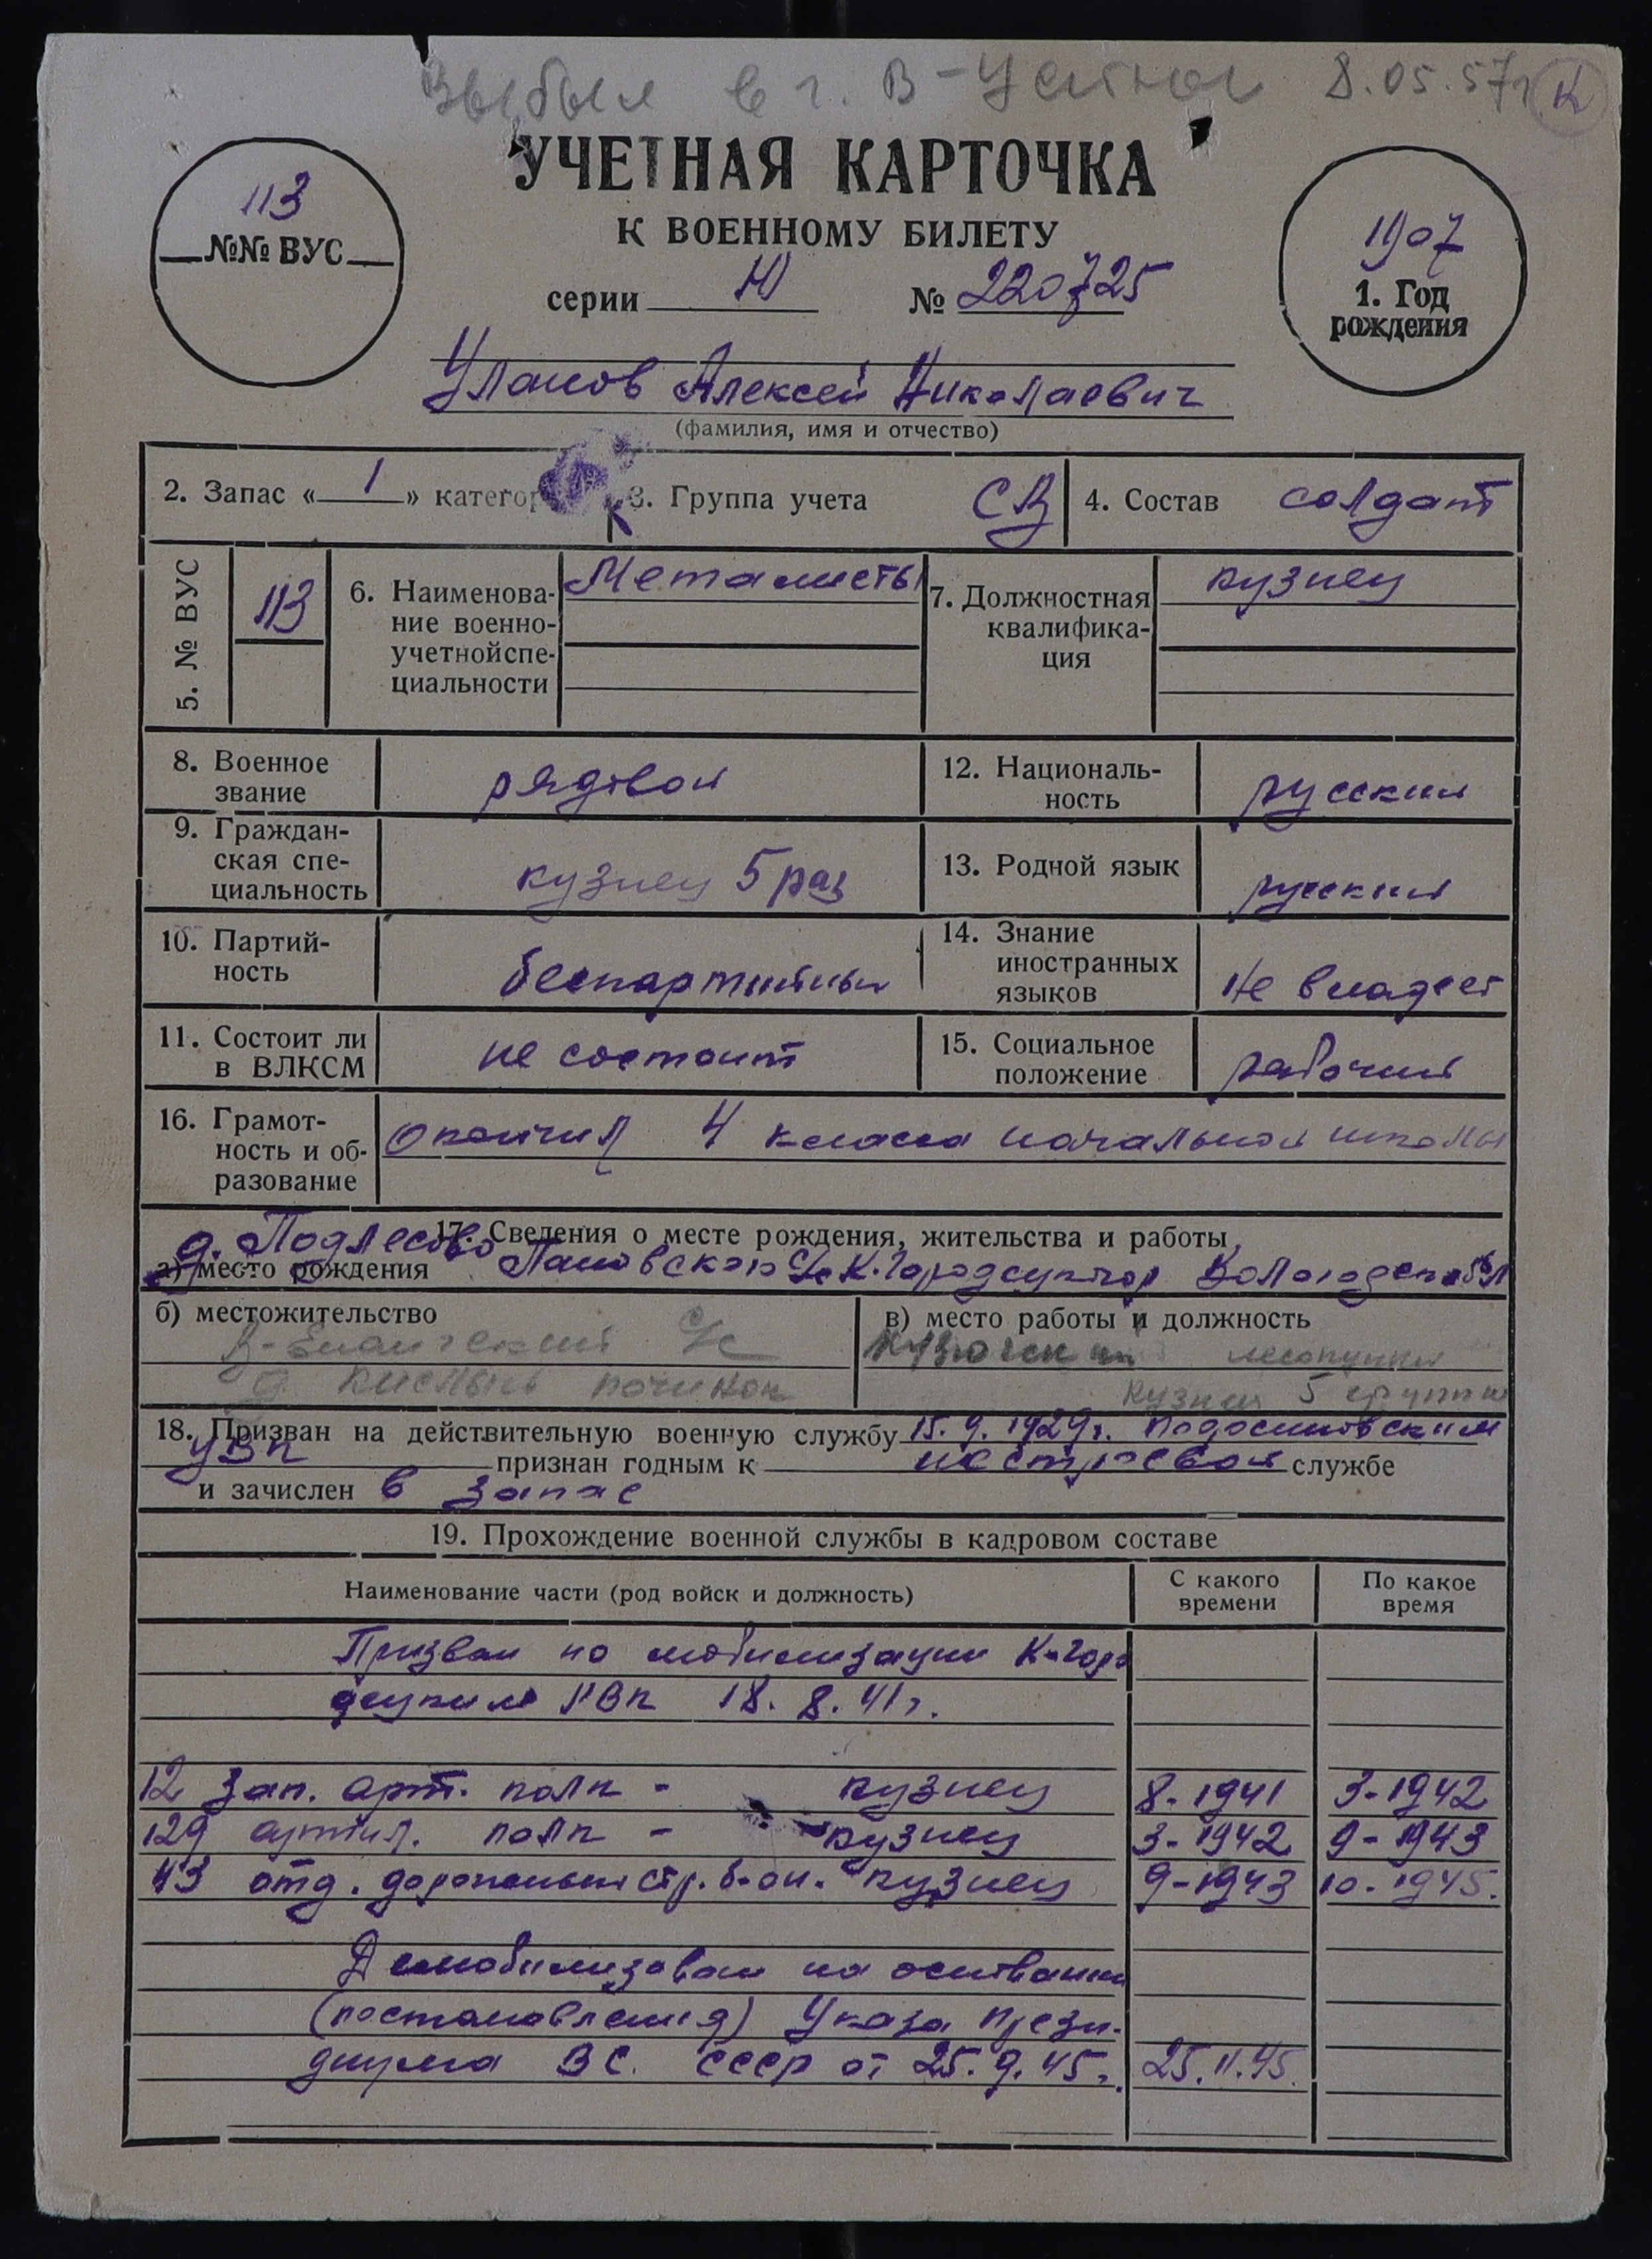 Выбыл в г. В-Устюг 8.05.57г К
УЧЕТНАЯ КАРТОЧКА
К ВОЕННОМУ БИЛЕТУ
113
№№ ВУС
серии Ю № 220725
1907
1. Год
рождения
Уланов Алексей Николаевич
(фамилия, имя и отчество)
2. Запас « 1 » категор 3. Группа учета СВ 4. Состав солдат
5. № ВУС 113
6. Наименова-
ние военно-
учетнойспе-
циальности
Металисты
7. Должностная
квалифика-
ция
кузнец
8. Военное
звание
рядовой
12. Националь-
ность
русский
9. Граждан-
ская спе-
циальность
кузнец 5 раз
13. Родной язык русский
10. Партий-
ность
беспартийный
14. Знание
иностранных
языков
Не владеет
11. Состоит ли
в ВЛКСМ
не состоит
15. Социальное
положение
рабочий
16. Грамот-
ность и об-
разование
окончил 4 класса начальной школы
17. Сведения о месте рождения, жительства и работы
д. Подлесово
а) место рождения Пановского С/с К-Городецкого Вологодской обл
б) местожительство
В-Ентальский С/с
д починок
в) место работы и должность
лесопункт
кузнец 5 группы
18. Призван на действительную военную службу 15.9.1929г. Подосиновским
УВК признан годным к нестроевой службе
и зачислен в запас
19. Прохождение военной службы в кадровом составе
Наименование части (род войск и должность) С какого
времени По какое
время
Призван по мобилизации К-Горо
децким РВК 18.8.41г.
12 зап. арт. полк - кузнец 8-1941 3-1942
129 артил. полк - кузнец 3-1942 9-1943
43 отд. дорожный стр. б-он. кузнец 9-1943 10-1945.
Демобилизован на основании
(постановления) Указа Прези-
диума ВС. СССР от 25.9.45г. 25.11.45.